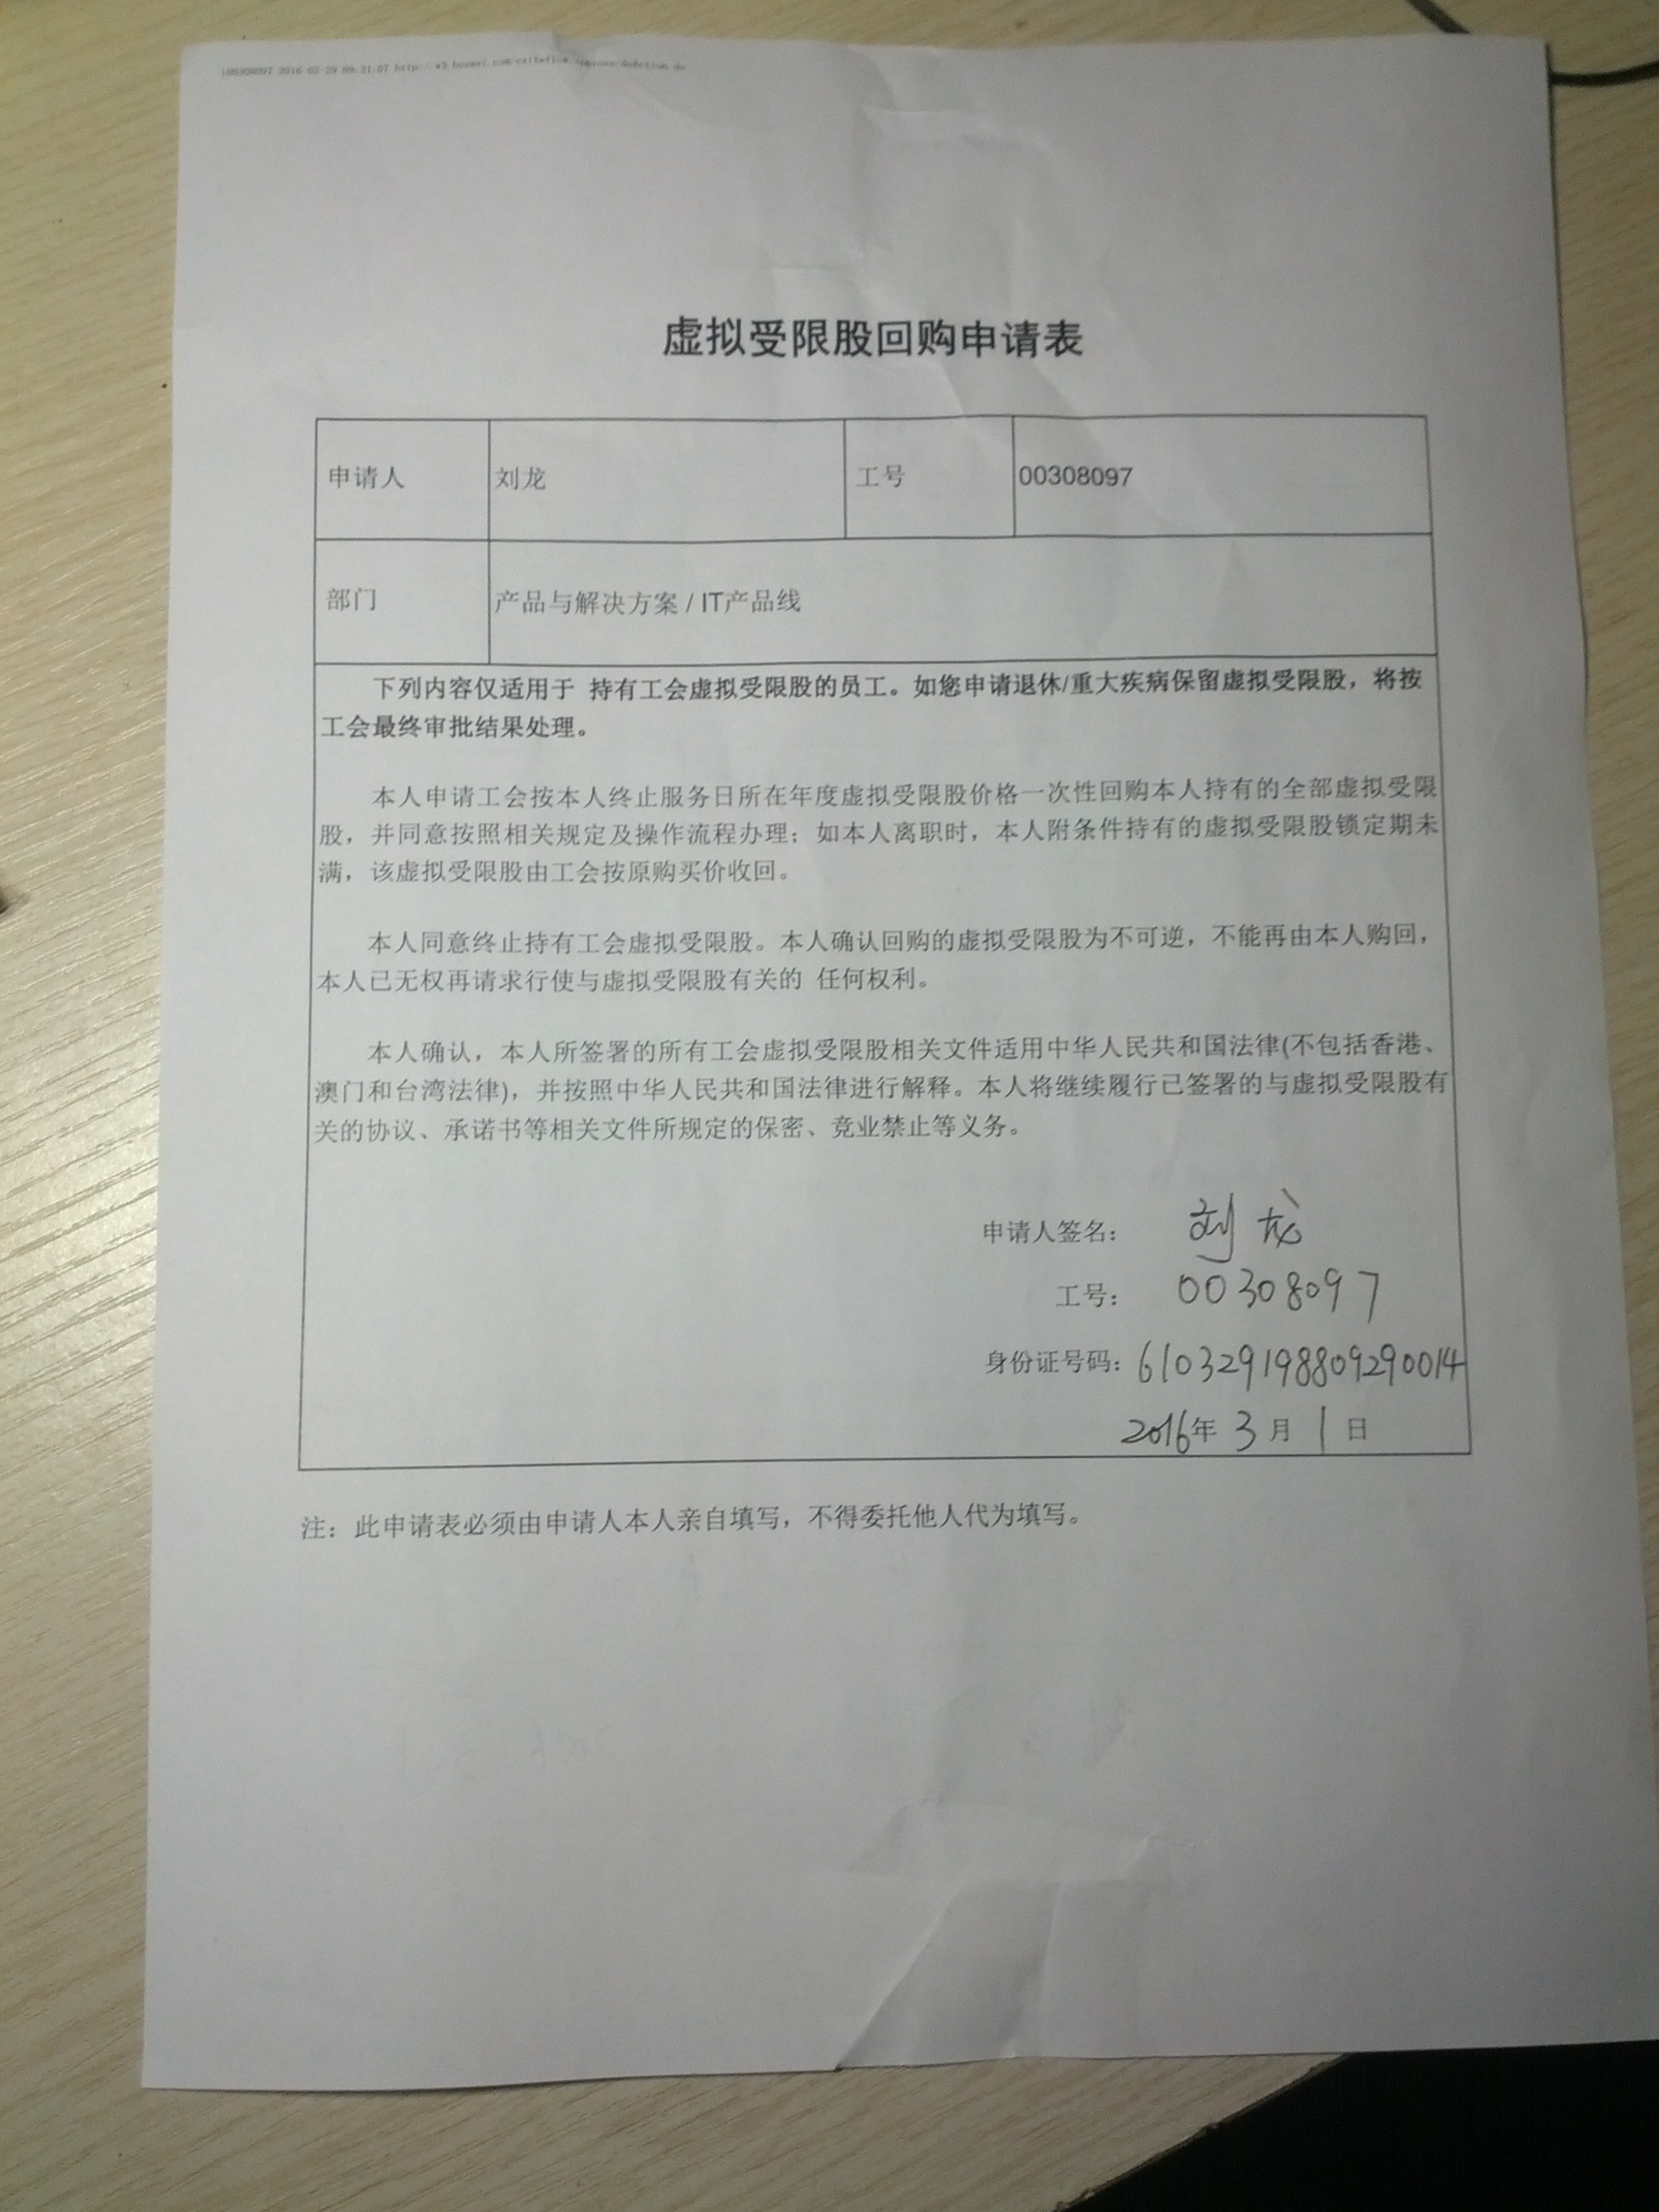 100308097 2016-02-29 09:31:07
虚拟受限股回购申请表
申请人 刘龙 工号 00308097
部门 产品与解决方案 / IT产品线
下列内容仅适用于 持有工会虚拟受限股的员工。如您申请退休/重大疾病保留虚拟受限股，将按
工会最终审批结果处理。
本人申请工会按本人终止服务日所在年度虚拟受限股价格一次性回购本人持有的全部虚拟受限
股，并同意按照相关规定及操作流程办理；如本人离职时，本人附条件持有的虚拟受限股锁定期未
满，该虚拟受限股由工会按原购买价收回。
本人同意终止持有工会虚拟受限股。本人确认回购的虚拟受限股为不可逆，不能再由本人购回，
本人已无权再请求行使与虚拟受限股有关的 任何权利。
本人确认，本人所签署的所有工会虚拟受限股相关文件适用中华人民共和国法律(不包括香港、
澳门和台湾法律)，并按照中华人民共和国法律进行解释。本人将继续履行已签署的与虚拟受限股有
关的协议、承诺书等相关文件所规定的保密、竞业禁止等义务。
申请人签名： 刘龙
工号： 00308097
身份证号码：610329198809290014
2016年 3月 1日
注：此申请表必须由申请人本人亲自填写，不得委托他人代为填写。